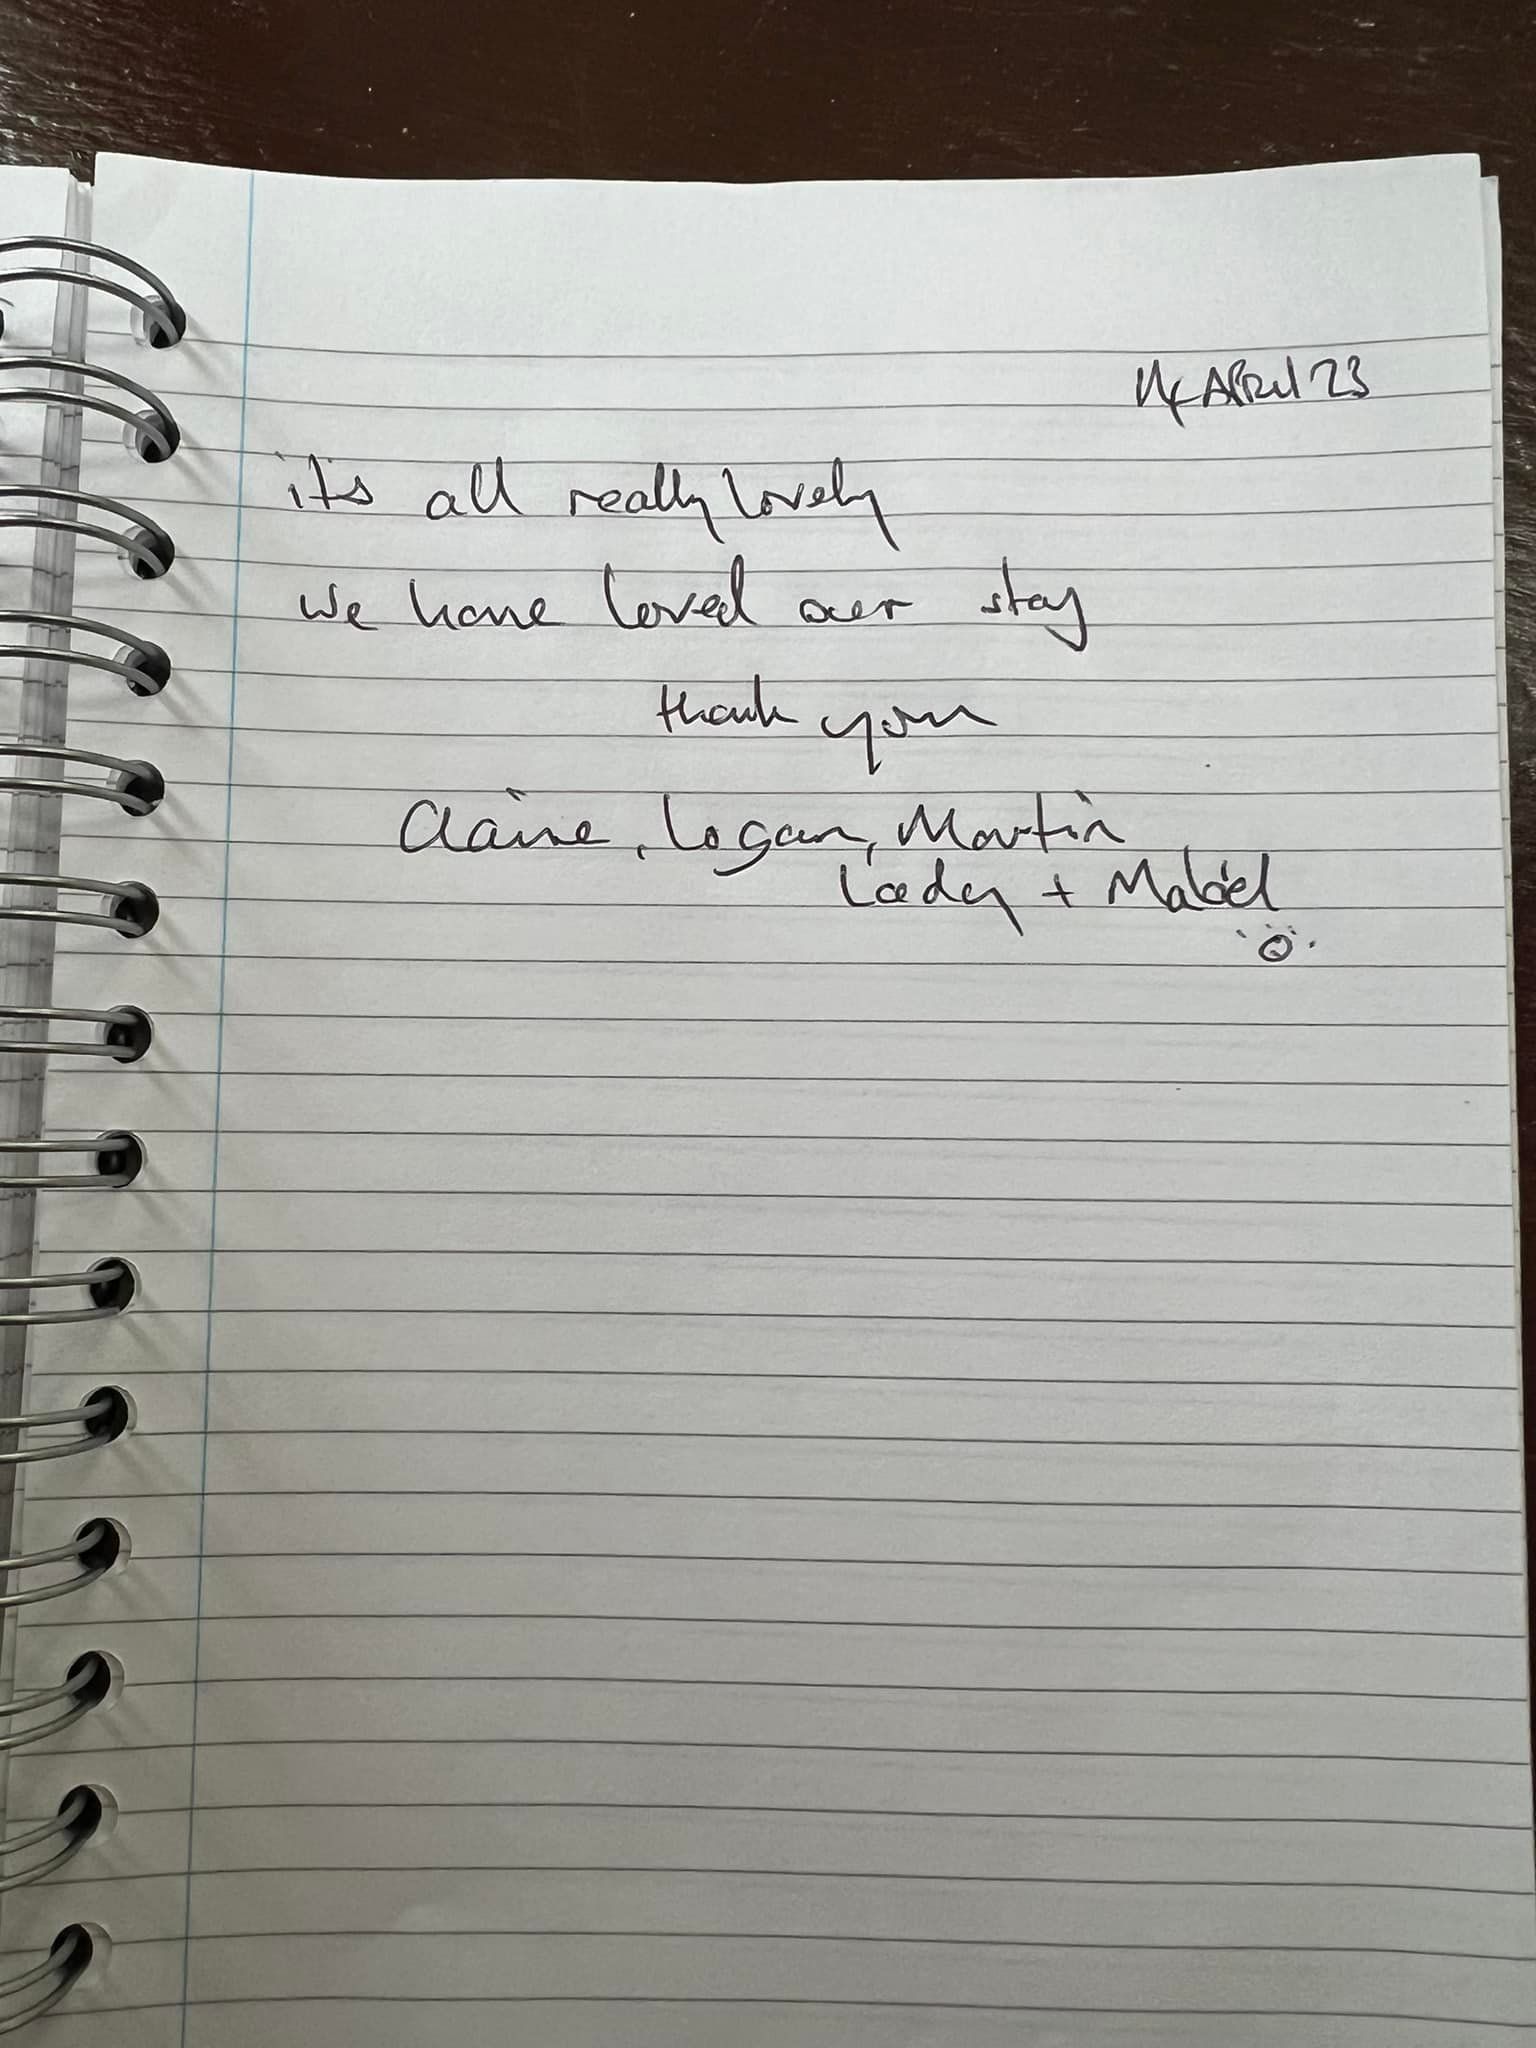 14 April 23
it's all really lovely
we have loved our stay
thank you
Claire, Logan, Martin
Lady + Mabel